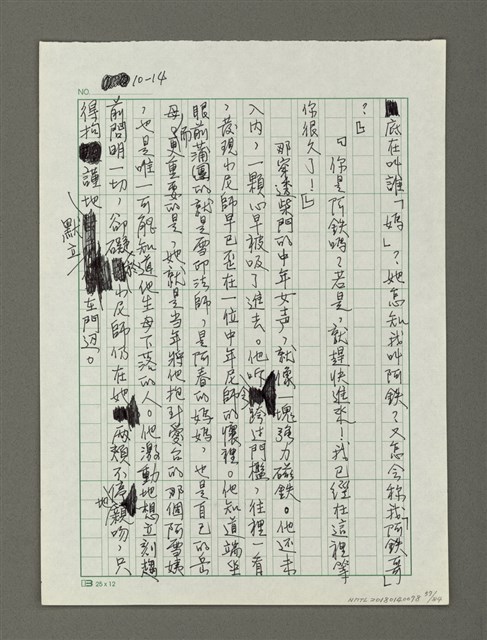 NO. 10-14
底在叫誰「媽」？她怎知我叫阿鐵？又怎会称我「阿鉄哥」
？』
『你是阿鉄嗎？若是，就趕快進來！我已經在這裡等
你很久了！』
那穿透柴門的中年女声，就像一塊強力磁鉄。他还未
入內，一顆心早被吸了進去。他跨过門檻，往裡一看
，發現小尼師早已歪在一位中年尼師的懷裡。他知道端坐
眼前蒲團的就是雪印法師，是阿春的媽媽，也是自己的岳
母；而更重要的是，她就是当年将他抱到愛台的那個阿雪姨
，也是唯一可能知道他生母下落的人。他激動地想立刻趨
前問明一切，卻礙於小尼師仍在她兩頰不停地親吻，只
得拘謹地默立在門边。
25 x 12
NMTL20180140078
87/114